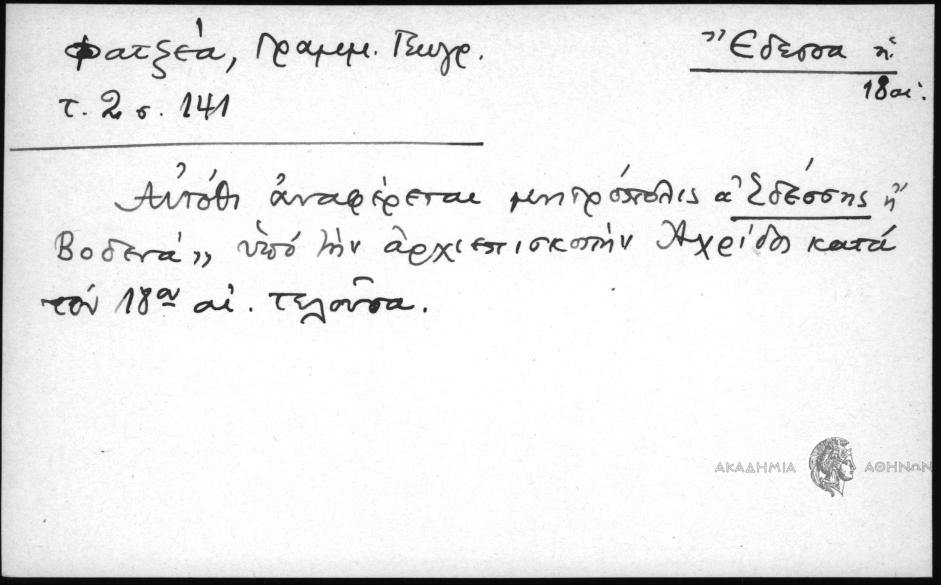 Φατζέα, Γραμμ. Γεωγρ.
τ. 2 σ. 141
Ἔδεσσα ἡ
18 αἰ.
Αὐτόθι ἀναφέρεται μητρόπολις "Ἐδέσσης ἢ
Βοδενά", ὑπό τὴν ἀρχιεπισκοπὴν Ἀχρίδος κατά
τόν 18ον αἰ. τελοῦσα.
ΑΚΑΔΗΜΙΑ ΑΘΗΝΩΝ